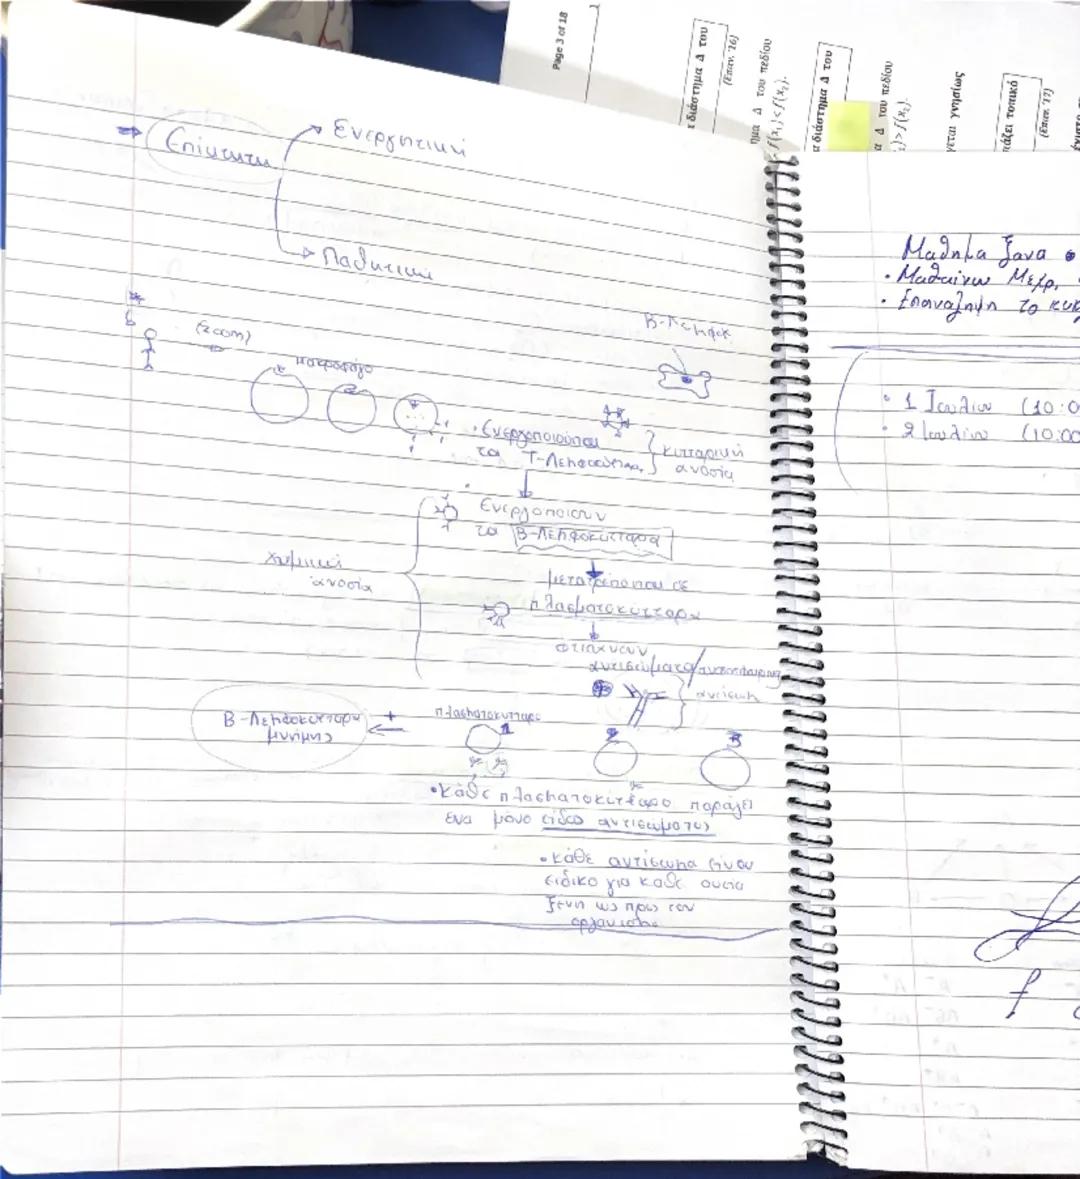 Page 3 of 18
α διάστημα Δ του
(Επαν. '16)
ημα Δ του πεδίου
f(x₁) < f(x₂).
α διάστημα Δ του
α Δ του πεδίου
)> f(x₂).
γεται γνησίως
ιάζει τοπικό
(Επαν. '17)
Επίκτητη
Ενεργητική
Παθητική
(zoom)
μακροφάγο
Β-Λεμφοκ
• Ενεργοποιούνται
τα Τ-Λεμφοκύτταρα
κυτταρική
ανοσία
Ενεργοποιούν
τα Β-Λεμφοκύτταρα
χυμική
ανοσία
μετατρέπονται σε
πλασματοκύτταρα
φτιάχνουν
αντισώματα/
Β-Λεμφοκύτταρα
μνήμης
+
πλασματοκύτταρο
1
2
3
• Κάθε πλασματοκύτταρο παράγει
ένα μόνο είδος αντισώματος
• Κάθε αντίσωμα είναι
ειδικό για κάθε ουσία
ξένη ως προς τον
οργανισμό
Μαθημα ξανα
• Μαθαίνω Μεχρ.
• Επαναληψη το κυκ
• 1 Ιουλίου (10:0
• 2 Ιουλίου (10:00
f